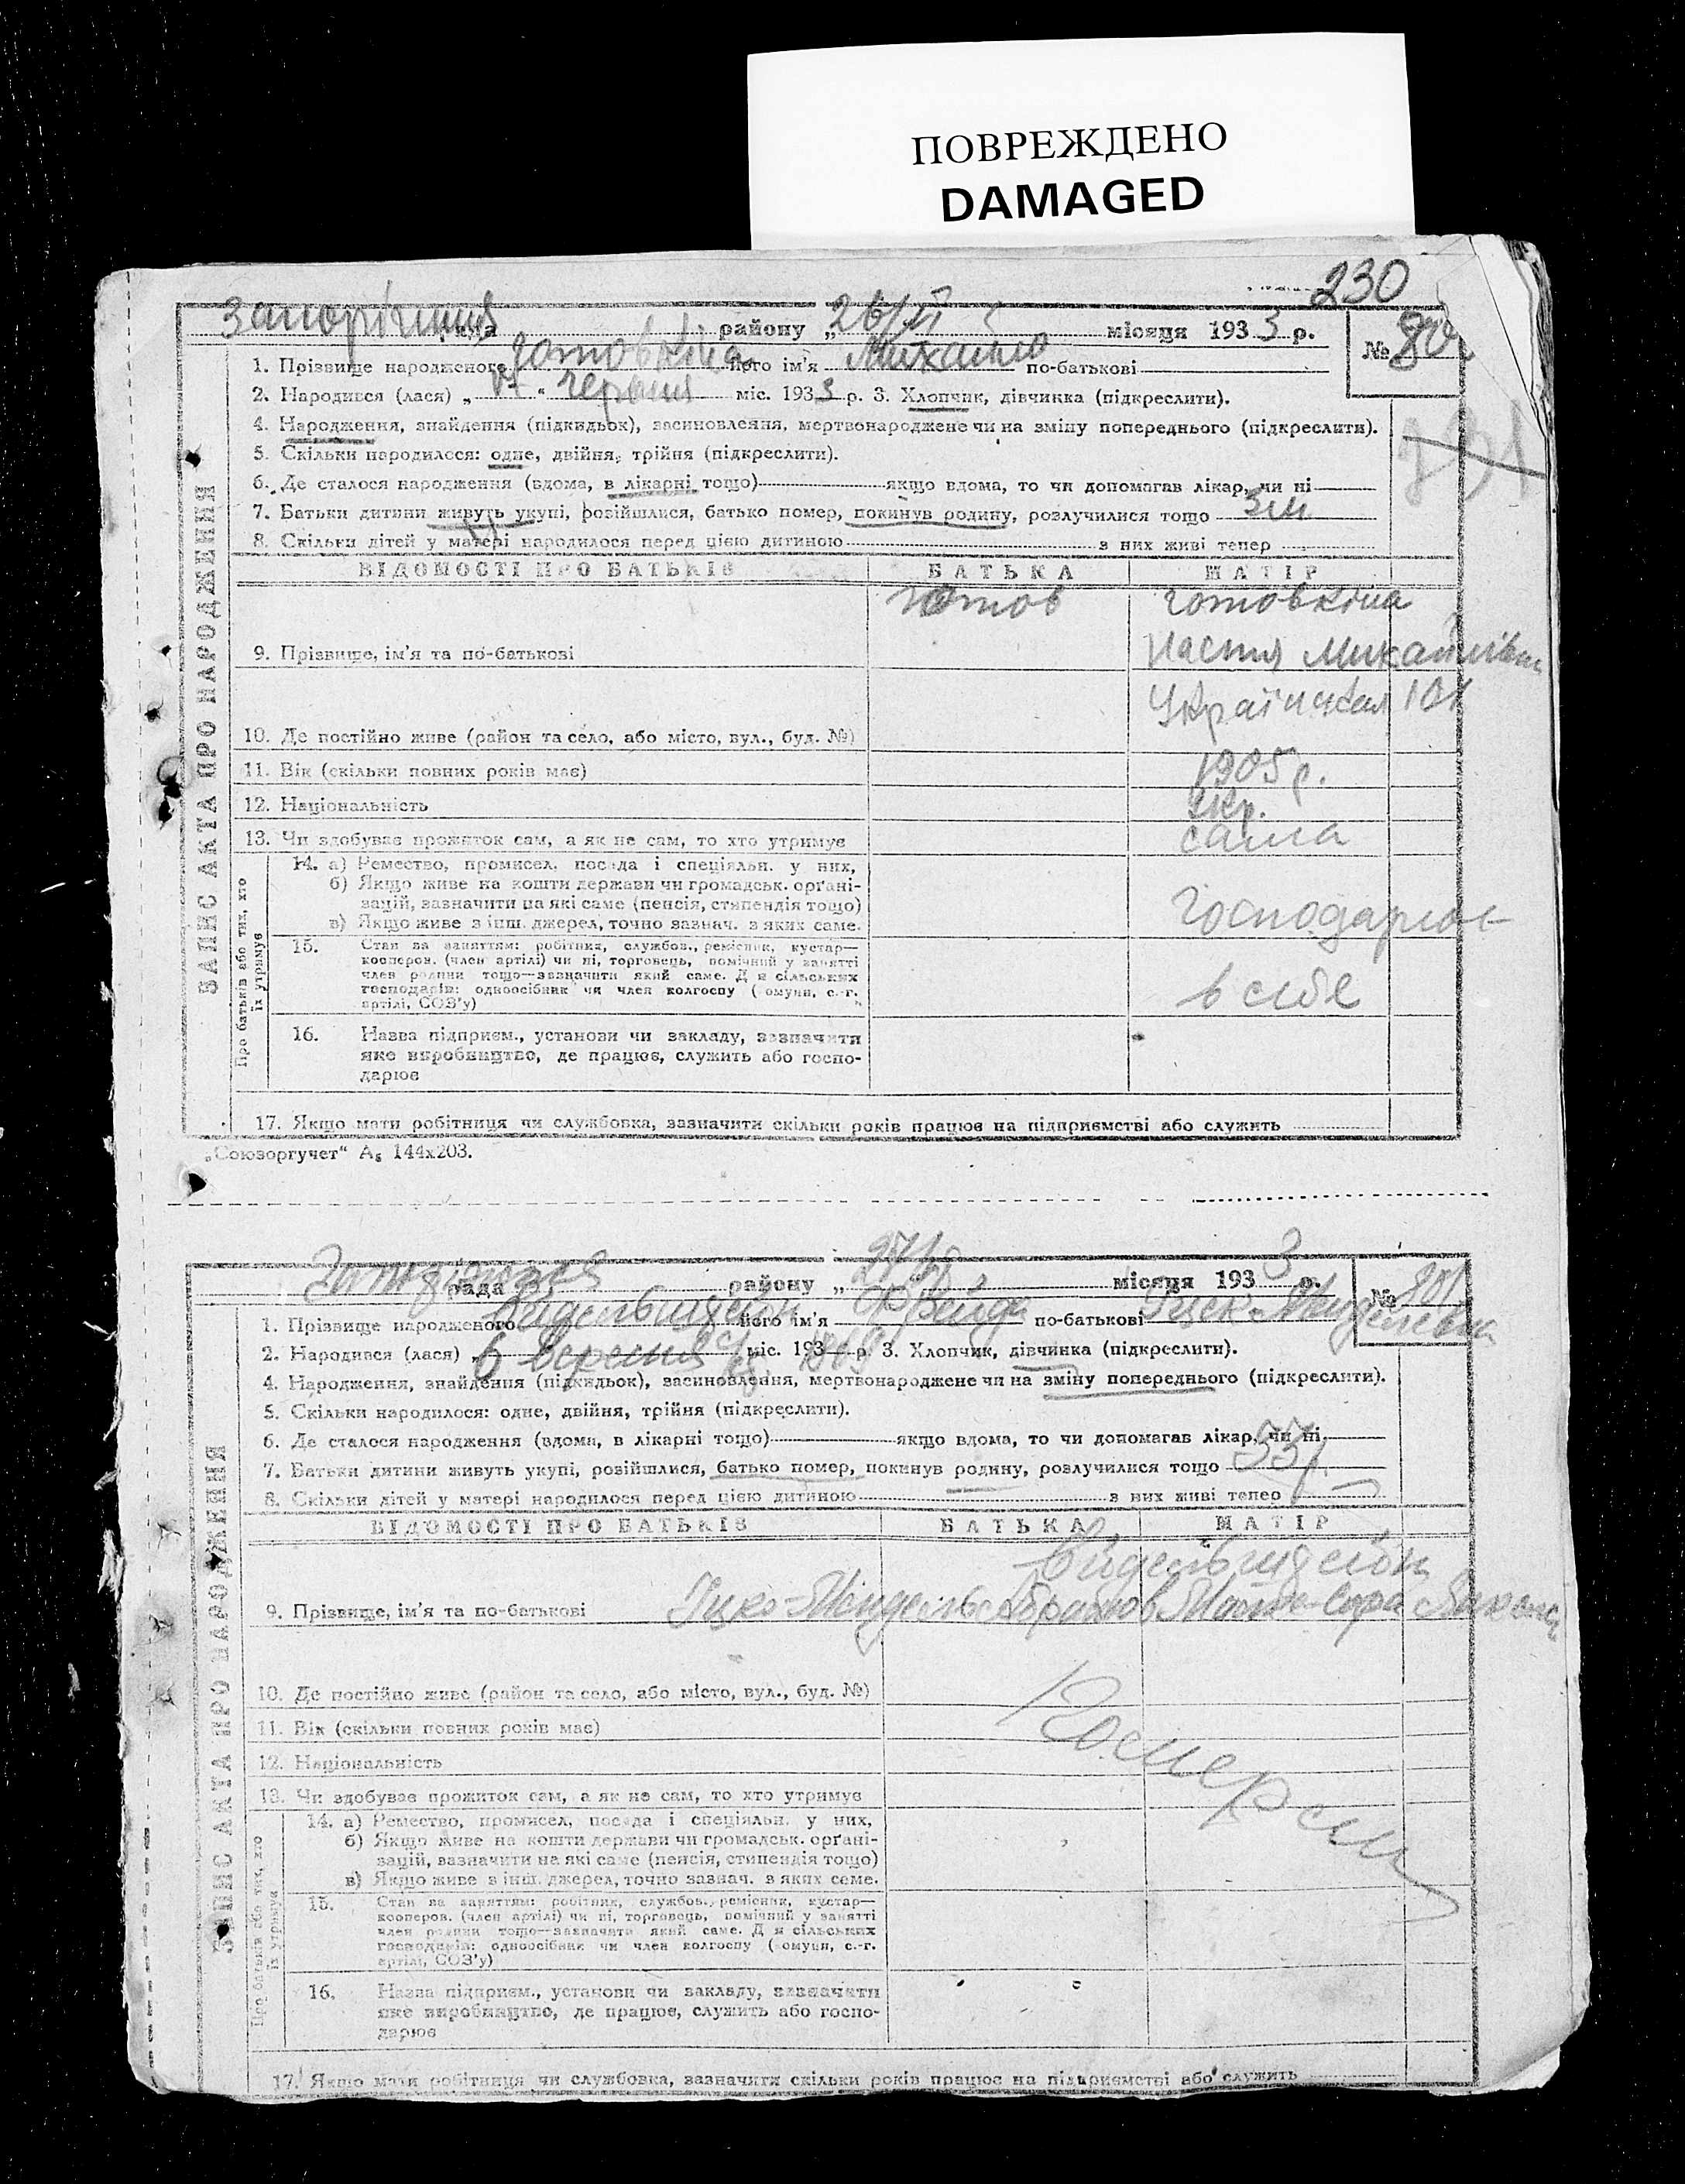 ПОВРЕЖДЕНО
DAMAGED
230
рада району „26/VI місяця 1933 р.
№
1. Прізвище народженого його ім'я Михайло по-батькові
2. Народився (лася) „ “ червня міс. 1933 р. 3. Хлопчик, дівчинка (підкреслити).
4. Народження, знайдення (підкидьок), засиновлення, мертвонароджене чи на зміну попереднього (підкреслити).
5. Скільки народилося: одне, двійня, трійня (підкреслити).
6. Де сталося народження (вдома, в лікарні тощо) якщо вдома, то чи допомагав лікар, чи ні
7. Батьки дитини живуть укупі, розійшлися, батько помер, покинув родину, розлучилися тощо
8. Скільки дітей у матері народилося перед цією дитиною з них живі тепер
ЗАПИС АКТА ПРО НАРОДЖЕННЯ
ВІДОМОСТІ ПРО БАТЬКІВ БАТЬКА МАТІР
Готов Готовкіна
9. Прізвище, ім'я та по-батькові Настя Михайлівн
10. Де постійно живе (район та село, або місто, вул., буд. №) 101
11. Вік (скільки повних років має) 1905 р.
12. Національність Укр.
13. Чи здобуває прожиток сам, а як не сам, то хто утримує сама
Про батьків або тих, хто їх утримує
14. а) Ремество, промисел, посада і спеціяльн. у них,
б) Якщо живе на кошти держави чи громадськ. орґані-
зацій, зазначити на які саме (пенсія, стипендія тощо)
в) Якщо живе з інш. джерел, точно зазнач. з яких саме.
15. Стан за заняттям: робітник, службов., ремісник, кустар—
кооперов. (член артілі) чи ні, торговець, помічний у занятті
член родини тощо—зазначити який саме. Д я сільських
господарів: одноосібник чи член колгоспу ( омуни, с.-г.
артілі, СОЗ'у)
в себе
16. Назва підприєм., установи чи закладу, зазначити
яке виробництво, де працює, служить або госпо-
дарює
17. Якщо мати робітниця чи службовка, зазначити скільки років працює на підприємстві або служить
„Союзоргучет“ А5 144х203.
рада району „ місяця 1933 р.
№ 801
1. Прізвище народженого його ім'я Фрейда по-батькові
2. Народився (лася) „6 вересня міс. 193 р. 3. Хлопчик, дівчинка (підкреслити).
4. Народження, знайдення (підкидьок), засиновлення, мертвонароджене чи на зміну попереднього (підкреслити).
5. Скільки народилося: одне, двійня, трійня (підкреслити).
6. Де сталося народження (вдома, в лікарні тощо) якщо вдома, то чи допомагав лікар, чи ні
7. Батьки дитини живуть укупі, розійшлися, батько помер, покинув родину, розлучилися тощо
8. Скільки дітей у матері народилося перед цією дитиною з них живі тепер
ЗАПИС АКТА ПРО НАРОДЖЕННЯ
ВІДОМОСТІ ПРО БАТЬКІВ БАТЬКА МАТІР
9. Прізвище, ім'я та по-батькові
10. Де постійно живе (район та село, або місто, вул., буд. №)
11. Вік (скільки повних років має)
12. Національність
13. Чи здобуває прожиток сам, а як не сам, то хто утримує
Про батьків або тих, хто їх утримує
14. а) Ремество, промисел, посада і спеціяльн. у них,
б) Якщо живе на кошти держави чи громадськ. орґані-
зацій, зазначити на які саме (пенсія, стипендія тощо)
в) Якщо живе з інш. джерел, точно зазнач. з яких саме.
15. Стан за заняттям: робітник, службов., ремісник, кустар—
кооперов. (член артілі) чи ні, торговець, помічний у занятті
член родини тощо—зазначити який саме. Д я сільських
господарів: одноосібник чи член колгоспу ( омуни, с.-г.
артілі, СОЗ'у)
16. Назва підприєм., установи чи закладу, зазначити
яке виробництво, де працює, служить або госпо-
дарює
17. Якщо мати робітниця чи службовка, зазначити скільки років працює на підприємстві або служить